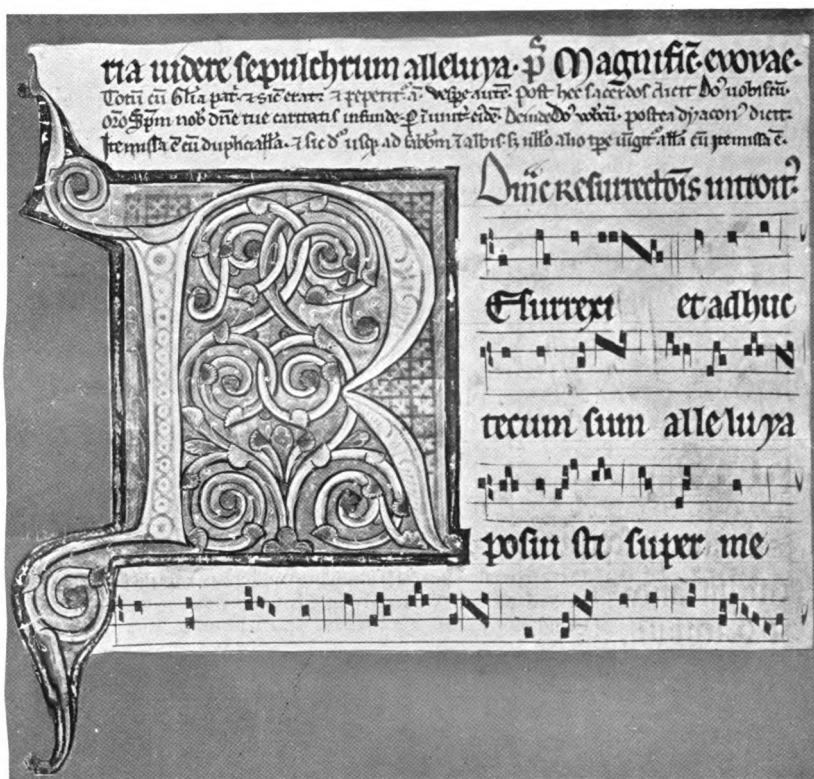 ria videre sepulchrum alleluya. ps Magnific̄. evovae.
Totū cū Gl̄ia pat̄. ⁊ sic̄ erat. ⁊ repetit᷒ a. Post hec sacerdos dicit Do᷒ vobiscū.
Spm̄ nob̄ dn̄e tue caritatis infunde. Deinde Do᷒ postea dyacon᷒ dicit.
Ite missa ē cū duplici all̄a. ⁊ sic usq̄ ad ⁊ albis. alio tp̄e all̄a cū ite missa ē.
Dn̄ic Resurrectōis introit᷒
R
Esurrexi et adhuc
tecum sum alleluya
posui sti super me